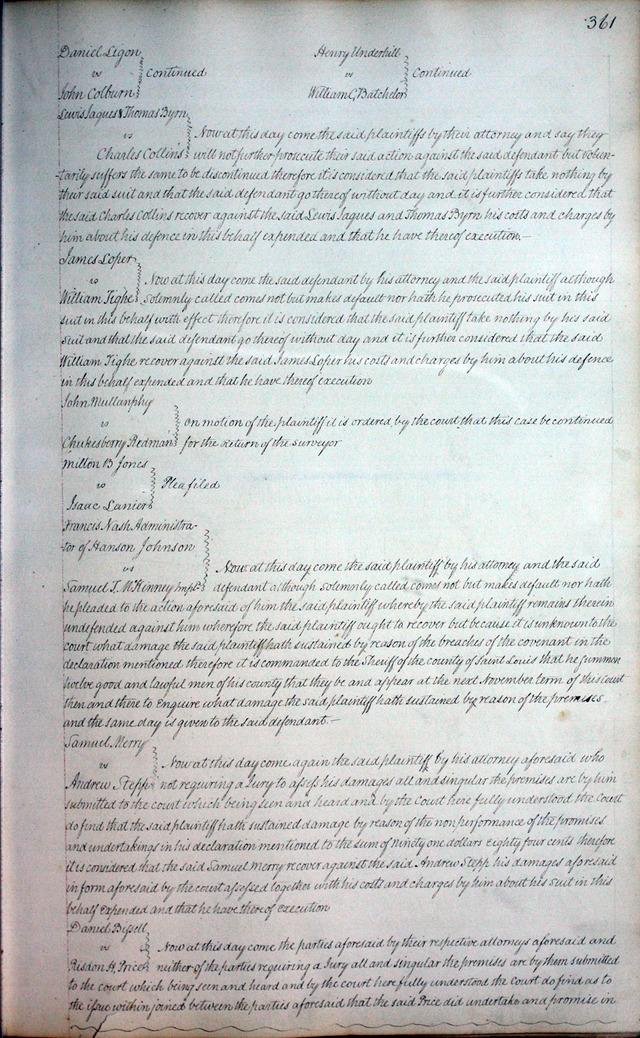 361
Daniel Ligon
vs
John Colburn
Continued
Henry Underhill
vs
William C Batchelor
Continued
Lewis Jaques & Thomas Byrn
vs
Now at this day come the said plaintiffs by their attorney and say they
Charles Collins will not further prosecute their said action against the said defendant but volun-
-tarily suffers the same to be discontinued therefore it is considered that the said plaintiffs take nothing by
their said suit and that the said defendant go thereof without day and it is further considered that
the said Charles Collins recover against the said Lewis Jaques and Thomas Byrn his costs and charges by
him about his defence in this behalf expended and that he have thereof execution.—
James Loper
vs
Now at this day come the said defendant by his attorney and the said plaintiff although
William Tighe solemnly called comes not but makes default nor hath he prosecuted his suit in this
suit in this behalf with effect therefore it is considered that the said plaintiff take nothing by his said
suit and that the said defendant go thereof without day and it is further considered that the said
William Tighe recover against the said James Loper his costs and charges by him about his defence
in this behalf expended and that he have thereof execution
John Mullanphy
vs
On motion of the plaintiff it is ordered by the court that this case be continued
Redman for the return of the surveyor
Milton B Jones
vs
Plea filed
Isaac Lanier
Francis Nash Administra-
tor of Hanson Johnson
vs
Now at this day come the said plaintiff by his attorney and the said
Samuel T. McKinney Impl'd defendant although solemnly called comes not but makes default nor hath
he pleaded to the action aforesaid of him the said plaintiff whereby the said plaintiff remains therein
undefended against him wherefore the said plaintiff ought to recover but because it is unknown to the
court what damage the said plaintiff hath sustained by reason of the breaches of the covenant in the
declaration mentioned therefore it is commanded to the Sheriff of the county of Saint Louis that he summon
twelve good and lawful men of his county that they be and appear at the next November term of this court
then and there to Enquire what damage the said plaintiff hath sustained by reason of the premises
and the same day is given to the said defendant.—
Samuel Merry
vs
Now at this day come again the said plaintiff by his attorney aforesaid who
Andrew Stepp not requiring a Jury to assess his damages all and singular the premises are by him
submitted to the court which being seen and heard and by the Court here fully understood the Court
do find that the said plaintiff hath sustained damage by reason of the nonperformance of the promises
and undertakings in his declaration mentioned to the sum of ninety one dollar eighty four cents therefore
it is considered that the said Samuel Merry recover against the said Andrew Stepp his damages aforesaid
in form aforesaid by the court assessed together with his costs and charges by him about his suit in this
behalf expended and that he have thereof execution
Daniel Bissell
vs
Now at this day come the parties aforesaid by their respective attorneys aforesaid and
Risdon H. Price neither of the parties requiring a Jury all and singular the premises are by them submitted
to the court which being seen and heard and by the court here fully understood the Court do find as to
the issue within joined between the parties aforesaid that the said Price did undertake and promise in